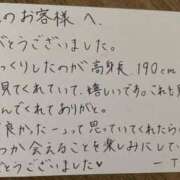 のお客様へ、
がとうございました。
っくりしたのが高身長190cm
見てくれていて、嬉しいです。これも
んでくれてありがと。
良かったーって思っていてくれたら
つか会えることを楽しみにしてい
とうございました♥
ーT